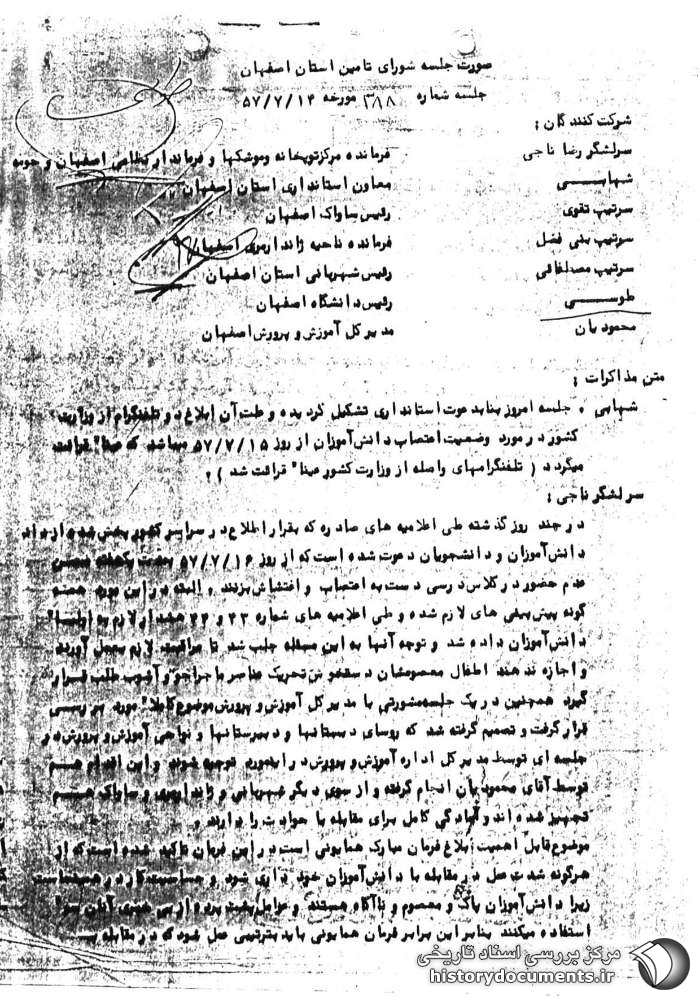 صورت جلسه شورای تامین استان اصفهان
جلسه شماره ۳۸۸ مورخه ۵۷/۷/۱۴
شرکت کنندگان :
سرلشگر رضا ناجی فرمانده مرکز توپخانه وموشکها و فرماندار نظامی اصفهان و حومه
شهابی معاون استانداری استان اصفهان
سرتیپ تقوی رئیس ساواک اصفهان
سرتیپ بنی فضل فرمانده ناحیه ژاندارمری اصفهان
سرتیپ مصطفائی رئیس شهربانی استان اصفهان
طوسی رئیس دانشگاه اصفهان
محمودیان مدیر کل آموزش و پرورش اصفهان
متن مذاکرات :
شهابی . جلسه امروز بنابدعوت استانداری تشکیل گردیده و علت آن ابلاغ دو تلفنگرام از وزارت
کشور در مورد وضعیت اعتصاب دانش‌آموزان از روز ۵۷/۷/۱۵ میباشد که عینا" قرائت
میگردد ( تلفنگرامهای واصله از وزارت کشور عینا" قرائت شد ) .
سرلشگر ناجی :
در چند روز گذشته طی اعلامیه های صادره که بقرار اطلاع در سراسر کشور پخش شده از
دانش‌آموزان و دانشجویان دعوت شده است که از روز ۵۷/۷/۱۶ بمدت یکهفته ضمن
عدم حضور در کلاس درسی دست به اعتصاب و اغتشاش بزنند . البته در این مورد همه
گونه پیش‌بینی های لازم شده و طی اعلامیه های شماره ۲۳ و ۲۴ هشدار لازم به اولیاء
دانش‌آموزان داده شد و توجه آنها به این مسئله جلب شد تا مراقبت لازم بعمل آورند
و اجازه ندهند اطفال معصومشان دستخوش تحریک عناصر ماجراجو و آشوب طلب قرار
گیرد همچنین در یک جلسه مشورتی با مدیر کل آموزش و پرورش موضوع کاملا" مورد بررسی
قرار گرفت و تصمیم گرفته شد که روسای دبستانها و دبیرستانها و نواحی آموزش و پرورش در
جلسه ای توسط مدیر کل اداره آموزش و پرورش در اینمورد توجیه شوند و این اقدام هم
توسط آقای محمودیان انجام گرفته و از سوی دیگر شهربانی و ژاندارمری و ساواک هم
تجهیز شده اند و آمادگی کامل برای مقابله با حوادث را دارند .
موضوع قابل اهمیت ابلاغ فرمان مبارک همایونی است در این فرمان تاکید شده است که از
هرگونه شدت عمل در مقابله با دانش‌آموزان خود داری شود و حساسیت کار در همینجاست
زیرا دانش‌آموزان پاک و معصوم و ناآگاه هستند و عوامل پشت پرده از بی خبری آنان سوء
استفاده میکنند بنابراین برابر فرمان همایونی باید بترتیبی عمل شود که در مقابله
مرکز بررسی اسناد تاریخی
historydocuments.ir